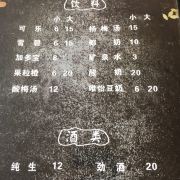 饮料
小 大 小 大
可乐 6 15 杨梅汤 15
雪碧 6 15 椰奶 10
加多宝 6 矿泉水 3
果粒橙 6 20 酸奶 20
酸梅汤 12 唯怡豆奶 6 20
酒类
纯生 12 劲酒 20